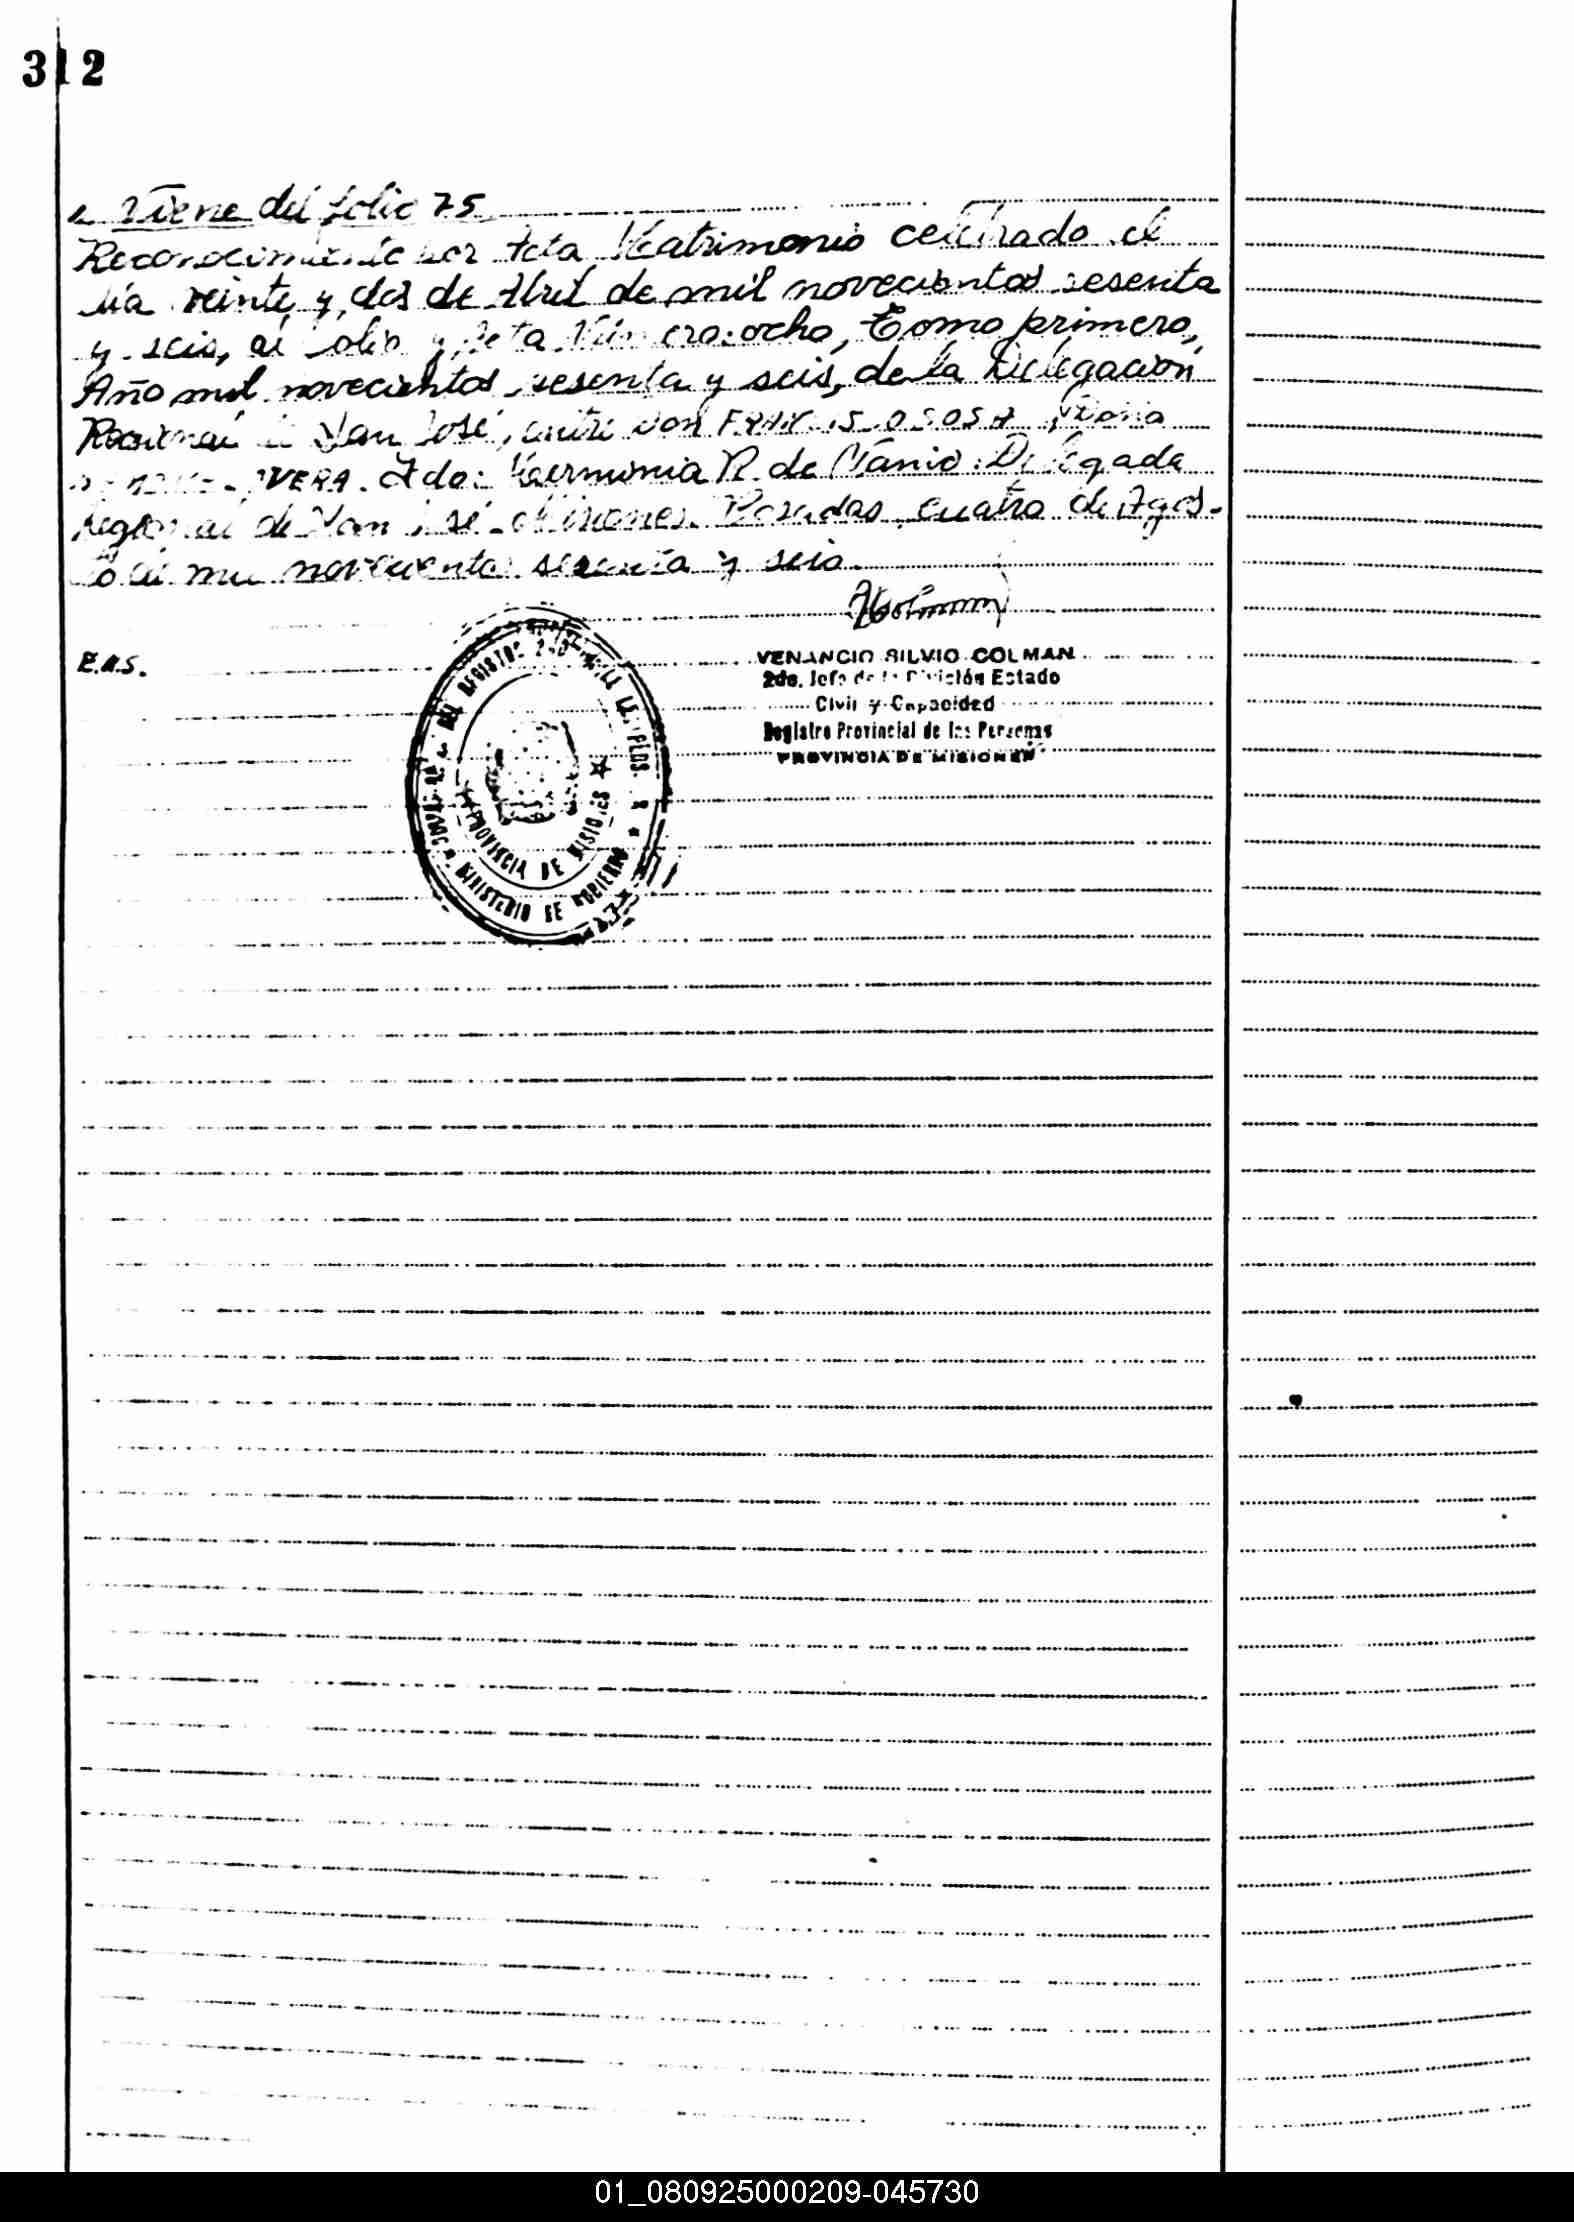 312
Viene del folio 75
Reconocimiento por Acta Matrimonio celebrado el
día veinte y dos de Abril de mil novecientos sesenta
y seis, al folio y Acta Número: ocho, Tomo primero,
Año mil novecientos sesenta y seis, de la Delegación
Regional de San José, entre Don SOSA y Doña
VERA. Fdo: Herminia R. de Delegada
Regional de San José - Misiones. Posadas, cuatro de Agos-
to de mil novecientos sesenta y seis.
E.A.S.
VENANCIO SILVIO COLMAN
2do. Jefe de la División Estado
Civil y Capacidad
Registro Provincial de las Personas
PROVINCIA DE MISIONES
DEL REGISTRO
PROVINCIA DE MISIONES
MINISTERIO DE GOBIERNO
01_080925000209-045730